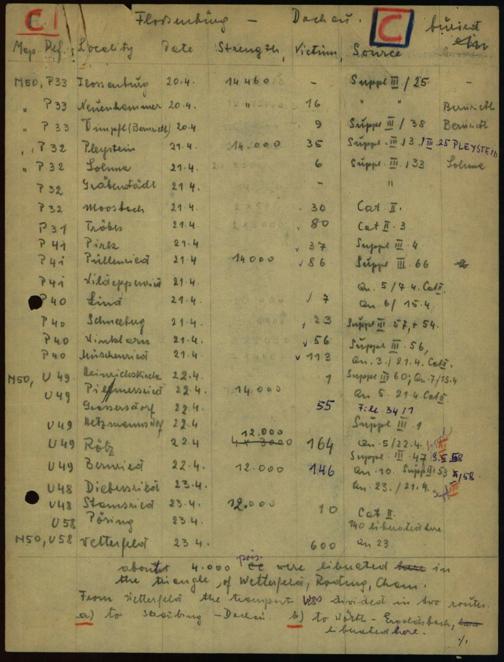 C Flossenbürg - Dachau. C buried
Map. Ref. Locality Date Strength Victims Source
M50, P33 Flossenbürg 20.4. 14.460 - Suppl III / 25
" P33 Neuenhammer 20.4. " 16 " " Bernrieth
" P33 (Bernrieth) 20.4 9 Suppl III / 38 Bernrieth
" P32 Pleystein 21.4 14.000 35 Suppl III / 3. / III 25 PLEYSTEIN
" P32 Lohma 21.4. 6 Suppl III / 33 Lohma
P32 Gröbenstädt 21.4 - "
P32 Moosbach 21.4 30 Cat II.
P31 Tröbes 21.4 80 Cat II. 3
P41 Pirk 21.4. 37 Suppl III. 4
P41 Pullenried 21.4 14000 86 Suppl III. 66
P41 Wildeppenried 21.4 An. 5/7.4. Cat II
P40 Lind 21.4. 7 An 6/ 15.4
P40 Schneeberg 21.4. 23 Suppl III 57, + 54.
P40 Winklarn 21.4. 56 Suppl III 56,
P40 Muschenried 21.4. 113 An. 3./21.4. Cat II.
M50, U49 Heinrichskirch 22.4. 1 Suppl III 60; An 7/15.4
U49 22.4. 14.000 An 5. 21.4 Cat II
55 File 34/1
U49 Hetzmannsdorf 22.4. Suppl III. 1
U49 Rötz 22.4 12.000 4x3000 164 An. 5/22.4.
U49 Bernried 22.4. 12.000 146 An. 10. Suppl III 53
U48 Diebersried 23.4. An. 23./21.4.
U48 Stamsried 23.4. 12.000 10 Cat II.
U58 Pösing 23.4 140 liberated here
M50, U58 Wetterfeld 23.4. 600 An 23.
about 4.000 were liberated in
the triangle of Wetterfeld, Roding, Cham.
From Wetterfeld the transport was divided in two routes.
a) to Straubing - Dachau b) to Wörth - Ergoldsbach,
liberated here.